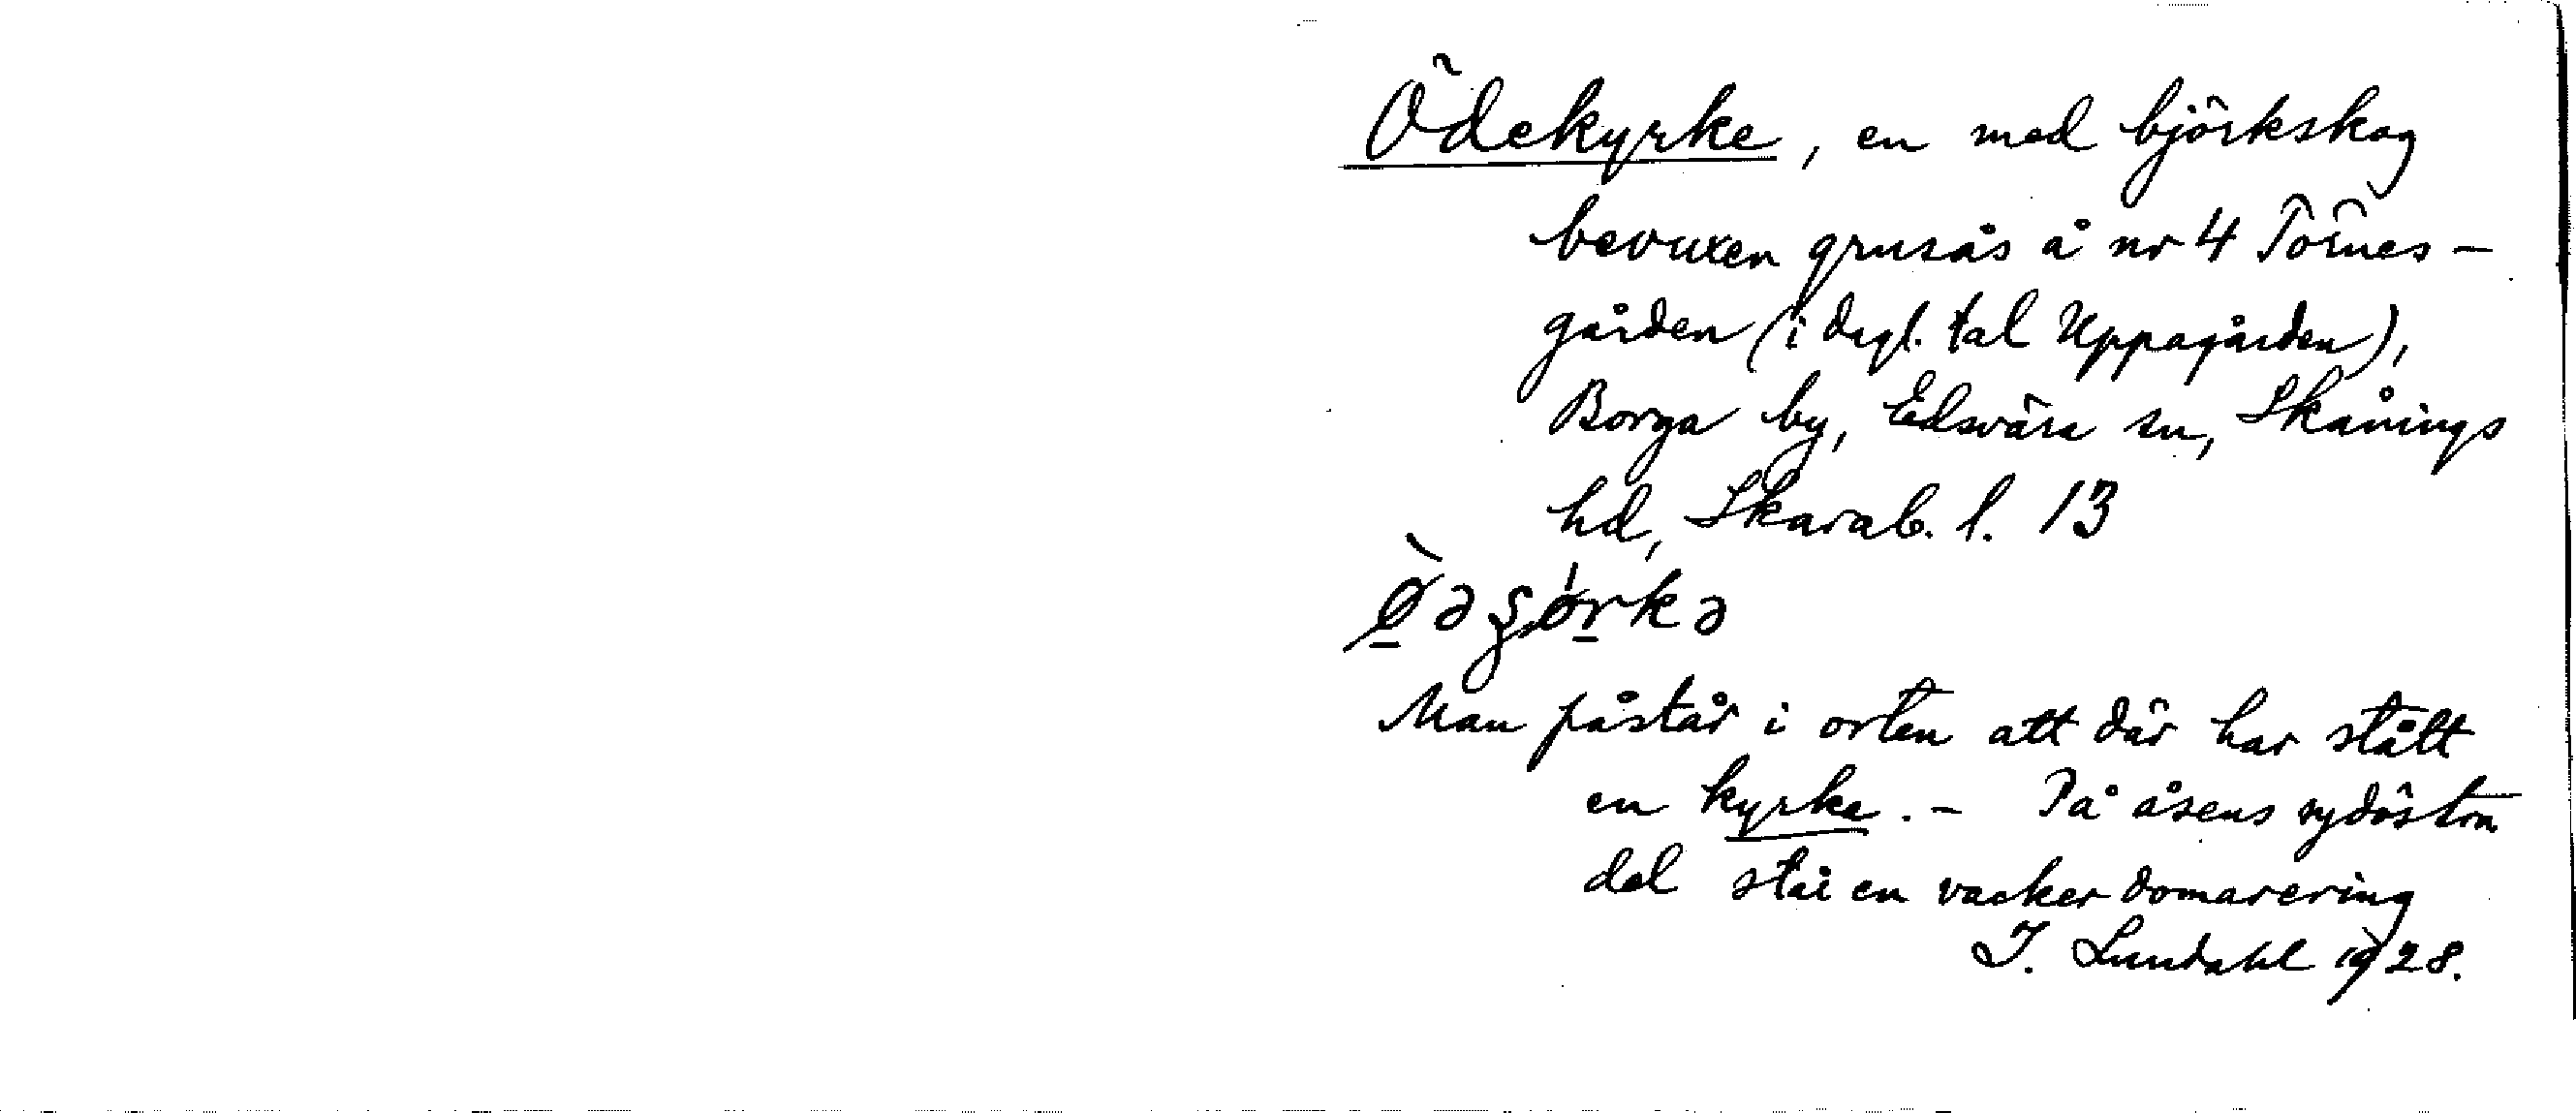 Ödekyrke, en med björkskog
bevuxen grusås å nr 4 Törnes-
gården (i dagl. tal Uppagården),
Borga by, Edsvära sn, Skånings
hd, Skarab. l. 13
Man påstår i orten att där har stått
en kyrka. - På åsens sydöstra
del står en vacker domarering
I. Lundahl 1928.